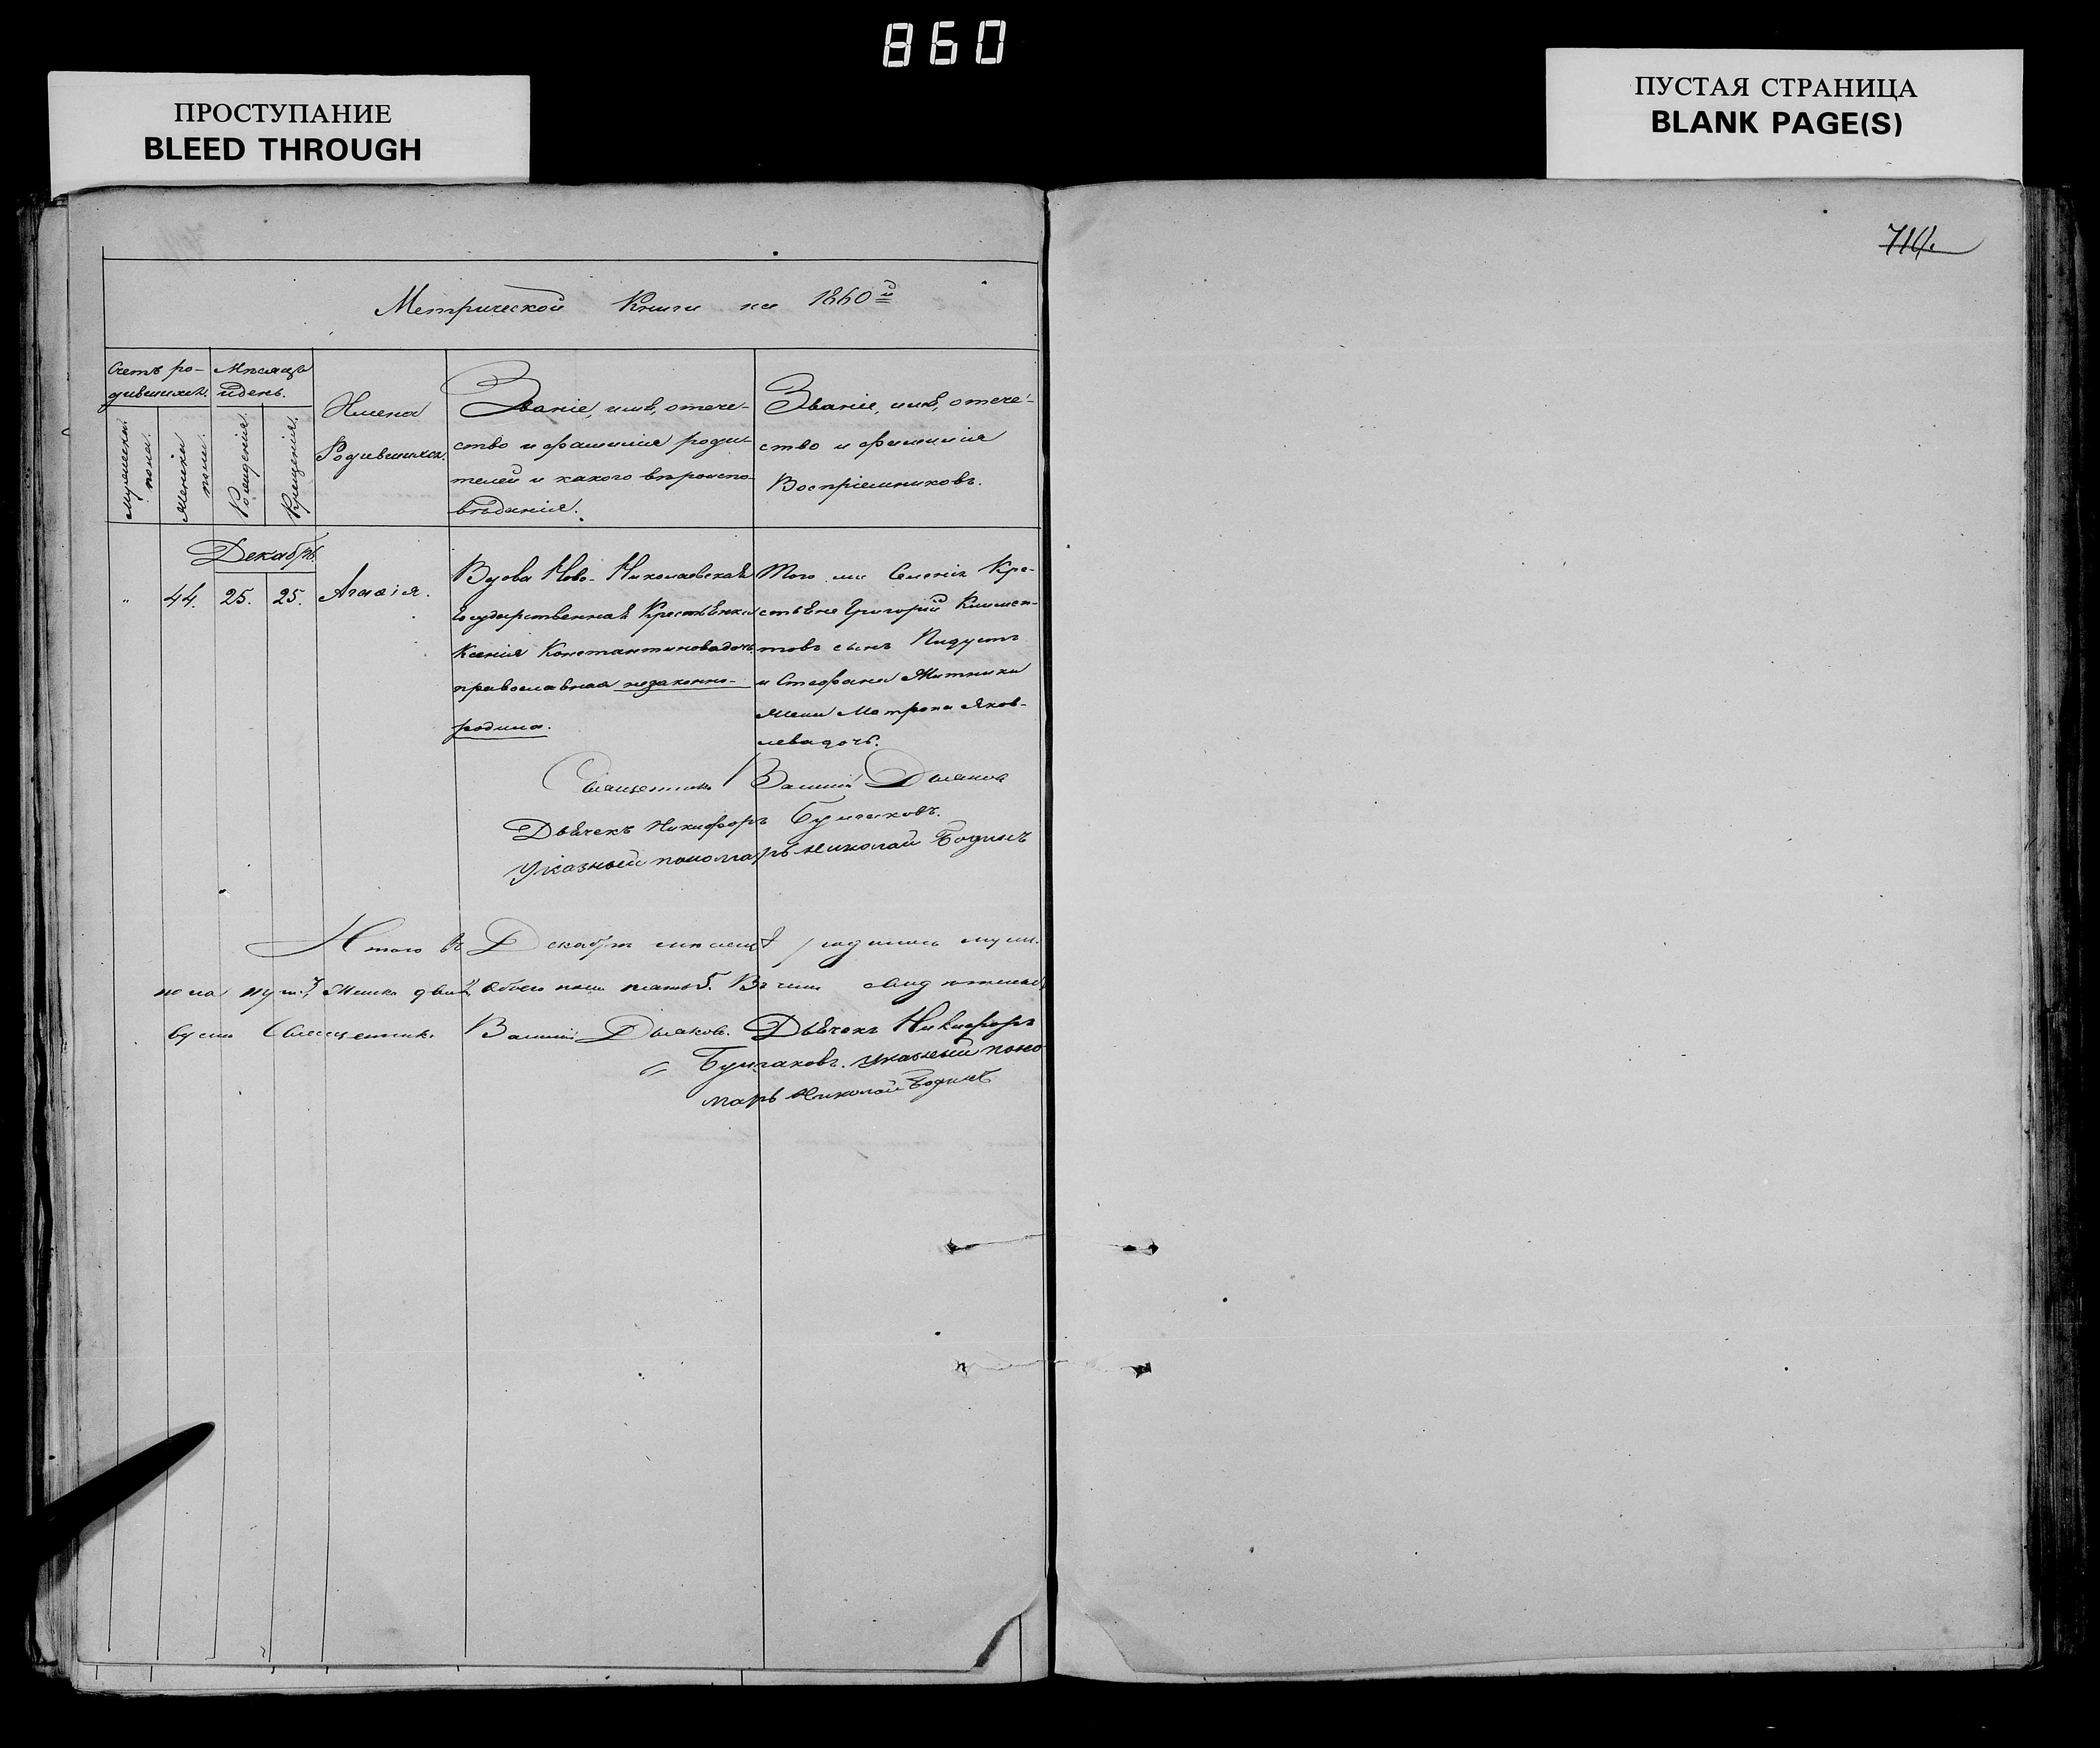 860
ПРОСТУПАНИЕ
BLEED THROUGH
ПУСТАЯ СТРАНИЦА
BLANK PAGE(S)
714.
Метрической Книги на 1860й
Счетъ ро-
дившихся.
Мѣсяцъ
и день.
Мужеска
пола.
Женска
пола.
Рожденія.
Крещенія.
Имена
Родившихся.
Званіе, имя, отече-
ство и фамилія роди-
телей и какого вѣроиспо-
вѣданія.
Званіе, имя, отече-
ство и фамилія
Воспріемниковъ.
Декабрь
" 44. 25. 25. Агафія.
Вдова Ново-Николаевская
Государственная Крестьянка
Ксенія Константинова дочь
православная незаконно-
родила.
Того же Селенія Кре-
стьяне Григорій Климен-
товъ сынъ
и Стефана Житника
Жена Матрона Яков-
лева дочь.
Священникъ Василій Дьяковъ
Дьячекъ Никифоръ Булгаковъ.
Указный пономарь Николай Бодинъ
Итого въ Декабрѣ мѣсяцѣ родилось муж.
пола три 3, Женска две 2, Обоего пола пять 5. Въ чемъ свидѣтель
вуемъ Священникъ Василій Дьяковъ. Дьячекъ Никифоръ
Булгаковъ. Указный поно
марь Николай Бодинъ